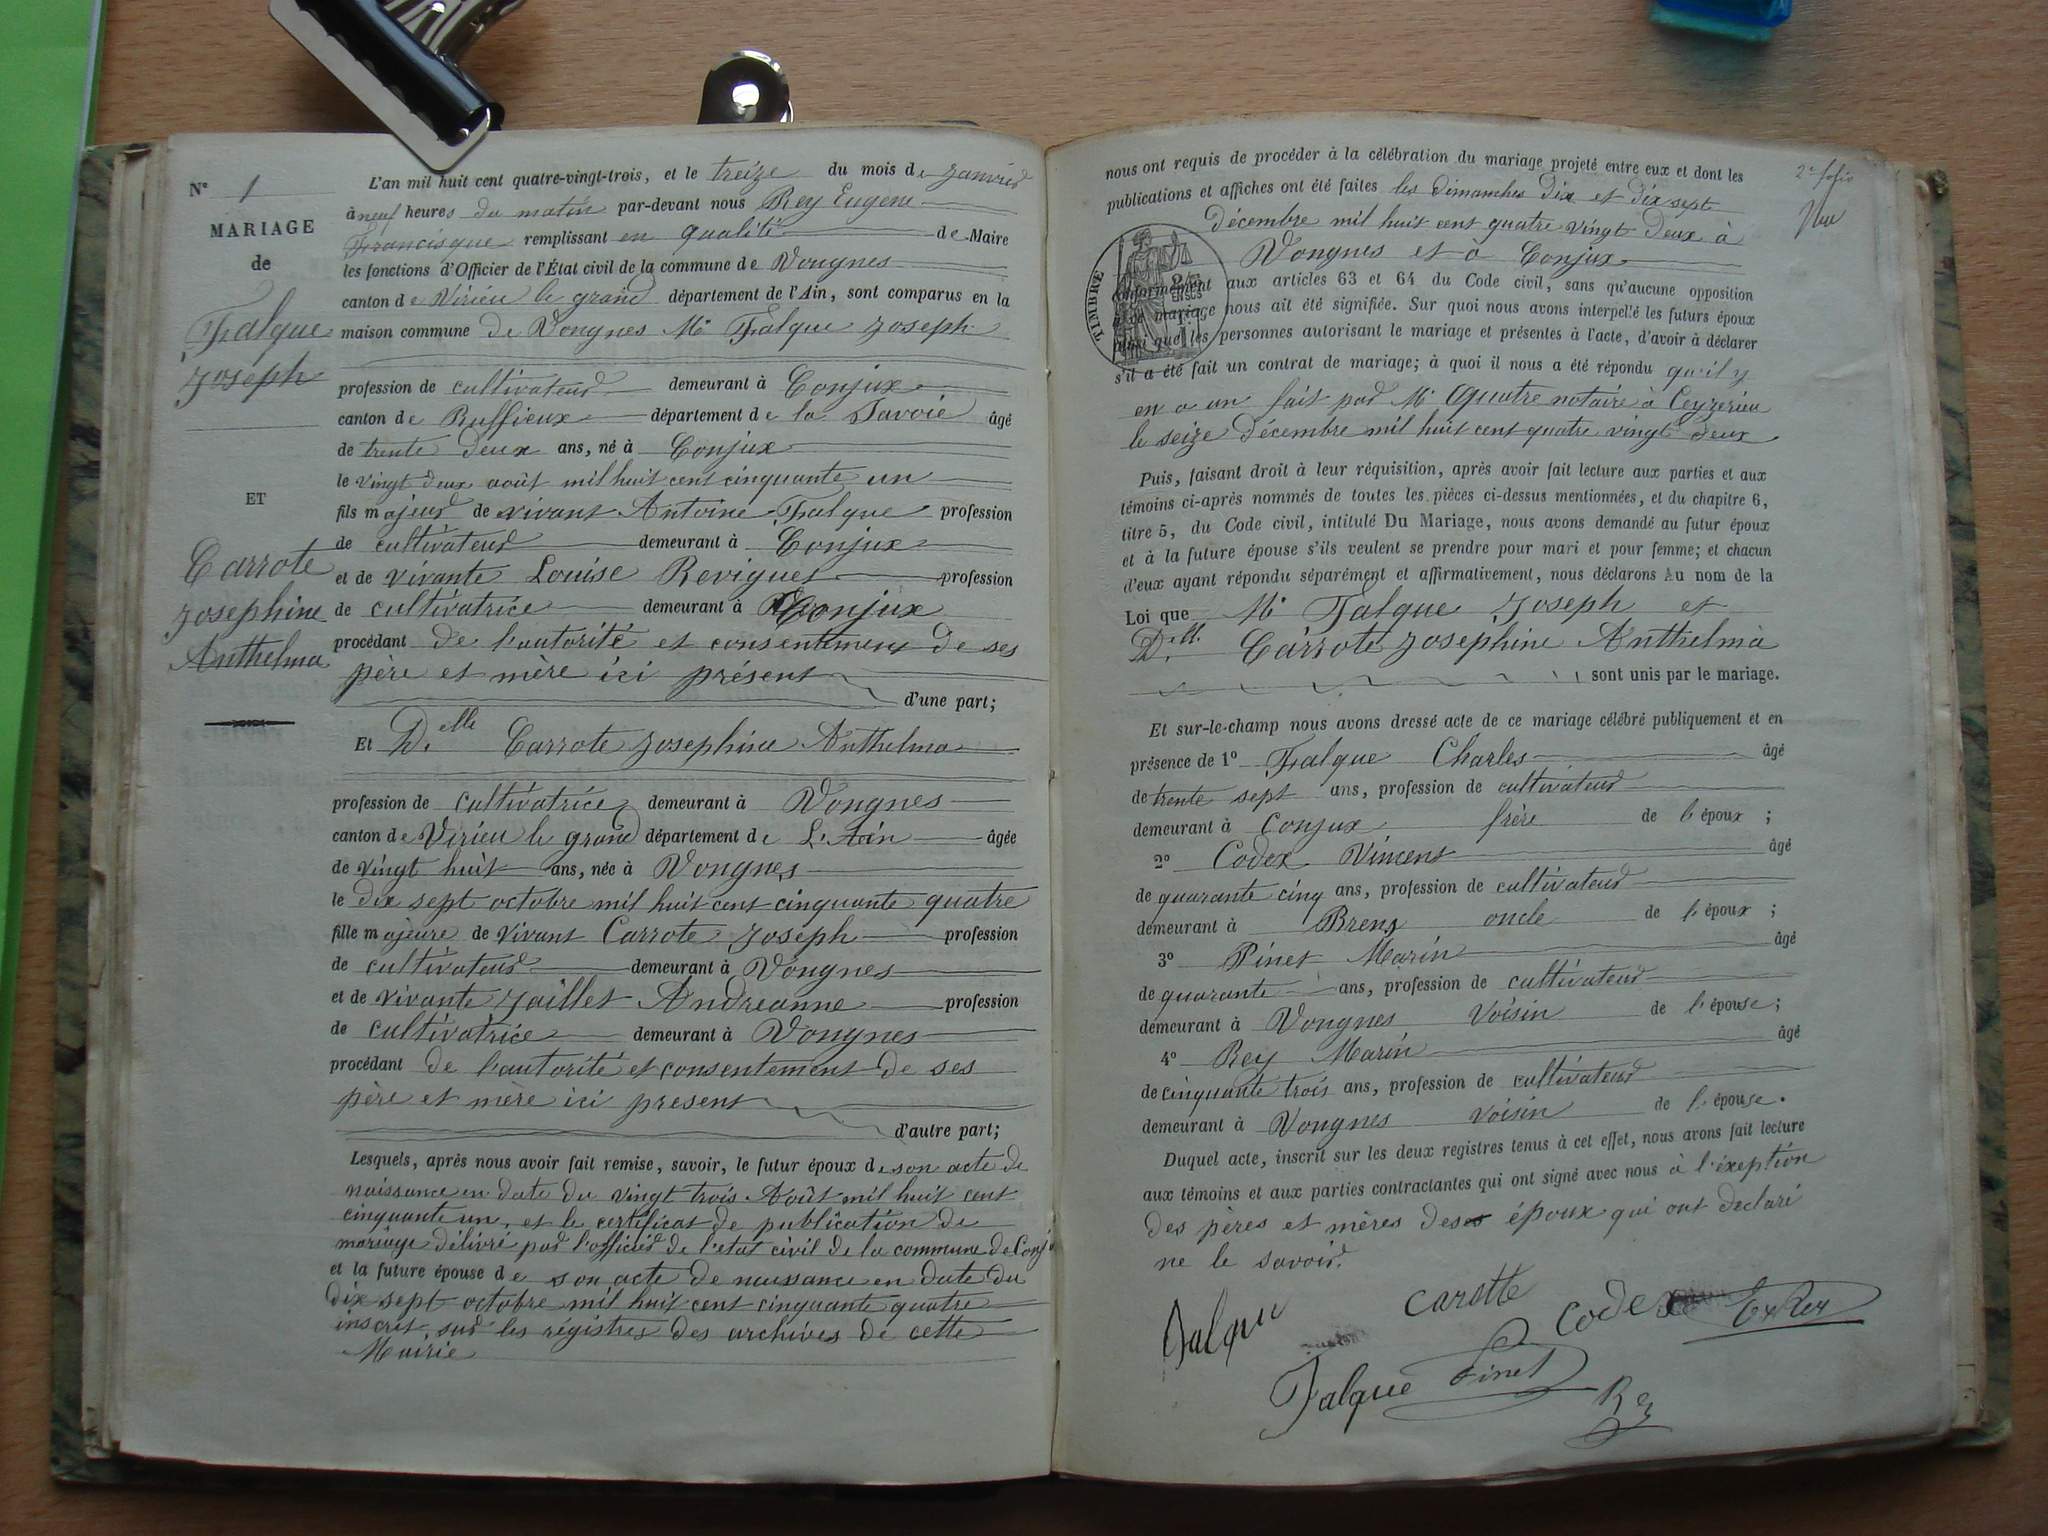 N° 1
MARIAGE
de
Falque
Joseph
ET
Carrote
Josephine
Anthelma
L'an mil huit cent quatre-vingt-trois, et le treize du mois de Janvier
à neuf heures du matin par-devant nous Rey Eugene
Francisque remplissant en qualité de Maire
les fonctions d'Officier de l'État civil de la commune de Vongnes
canton de Virieu le grand département de l'Ain, sont comparus en la
maison commune de Vongnes Mr Falque Joseph
profession de cultivateur demeurant à Conjux
canton de Ruffieux département de la Savoie âgé
de trente deux ans, né à Conjux
le vingt deux août mil huit cent cinquante un
fils majeur de vivant Antoine Falque profession
de cultivateur demeurant à Conjux
et de vivante Louise Reviguet profession
de cultivatrice demeurant à Conjux
procédant de l'autorité et consentement de ses
père et mère ici présent
d'une part;
Et Delle Carrote Josephine Anthelma
profession de cultivatrice demeurant à Vongnes
canton de Virieu le grand département de L'Ain âgée
de vingt huit ans, née à Vongnes
le dix sept octobre mil huit cent cinquante quatre
fille majeure de vivant Carrote Joseph profession
de cultivateur demeurant à Vongnes
et de vivante Jaillet Andreanne profession
de cultivatrice demeurant à Vongnes
procédant de l'autorité et consentement de ses
père et mère ici present
d'autre part;
Lesquels, après nous avoir fait remise, savoir, le futur époux de son acte de
naissance en date du vingt trois Août mil huit cent
cinquante un, et le certificat de publication de
mariage délivré par l'officier de l'etat civil de la commune de Conj
et la future épouse de son acte de naissance en date du
dix sept octobre mil huit cent cinquante quatre
inscrit sur les régistres des archives de cette
Mairie
2e folio
nous ont requis de procéder à la célébration du mariage projeté entre eux et dont les
publications et affiches ont été faites les dimanches dix et dix sept
décembre mil huit cent quatre vingt deux à
Vongnes et à Conjux
TIMBRE
conformément aux articles 63 et 64 du Code civil, sans qu'aucune opposition
à ce mariage nous ait été signifiée. Sur quoi nous avons interpellé les futurs époux
ainsi que les personnes autorisant le mariage et présentes à l'acte, d'avoir à déclarer
s'il a été fait un contrat de mariage; à quoi il nous a été répondu qu'il y
en a un fait par Mr Aquatre notaire à Ceyzerieu
le seize décembre mil huit cent quatre vingt deux
Puis, faisant droit à leur réquisition, après avoir fait lecture aux parties et aux
témoins ci-après nommés de toutes les pièces ci-dessus mentionnées, et du chapitre 6,
titre 5, du Code civil, intitulé Du Mariage, nous avons demandé au futur époux
et à la future épouse s'ils veulent se prendre pour mari et pour femme; et chacun
d'eux ayant répondu séparément et affirmativement, nous déclarons Au nom de la
Loi que Mr Falque Joseph et
Delle Carrote Josephine Anthelma
sont unis par le mariage.
Et sur-le-champ nous avons dressé acte de ce mariage célébré publiquement et en
présence de 1° Falque Charles âgé
de trente sept ans, profession de cultivateur
demeurant à Conjux frère de l'époux ;
2° Codex Vincent âgé
de quarante cinq ans, profession de cultivateur
demeurant à Brens oncle de l'époux ;
3° Pinet Marin âgé
de quarante ans, profession de cultivateur
demeurant à Vongnes voisin de l'épouse;
4° Rey Marin âgé
de cinquante trois ans, profession de cultivateur
demeurant à Vongnes voisin de l'épouse.
Duquel acte, inscrit sur les deux registres tenus à cet effet, nous avons fait lecture
aux témoins et aux parties contractantes qui ont signé avec nous à l'exeption
des pères et mères des époux qui ont declaré
ne le savoir.
Falque carotte codex Ex Rey
Falque Pinet Rey